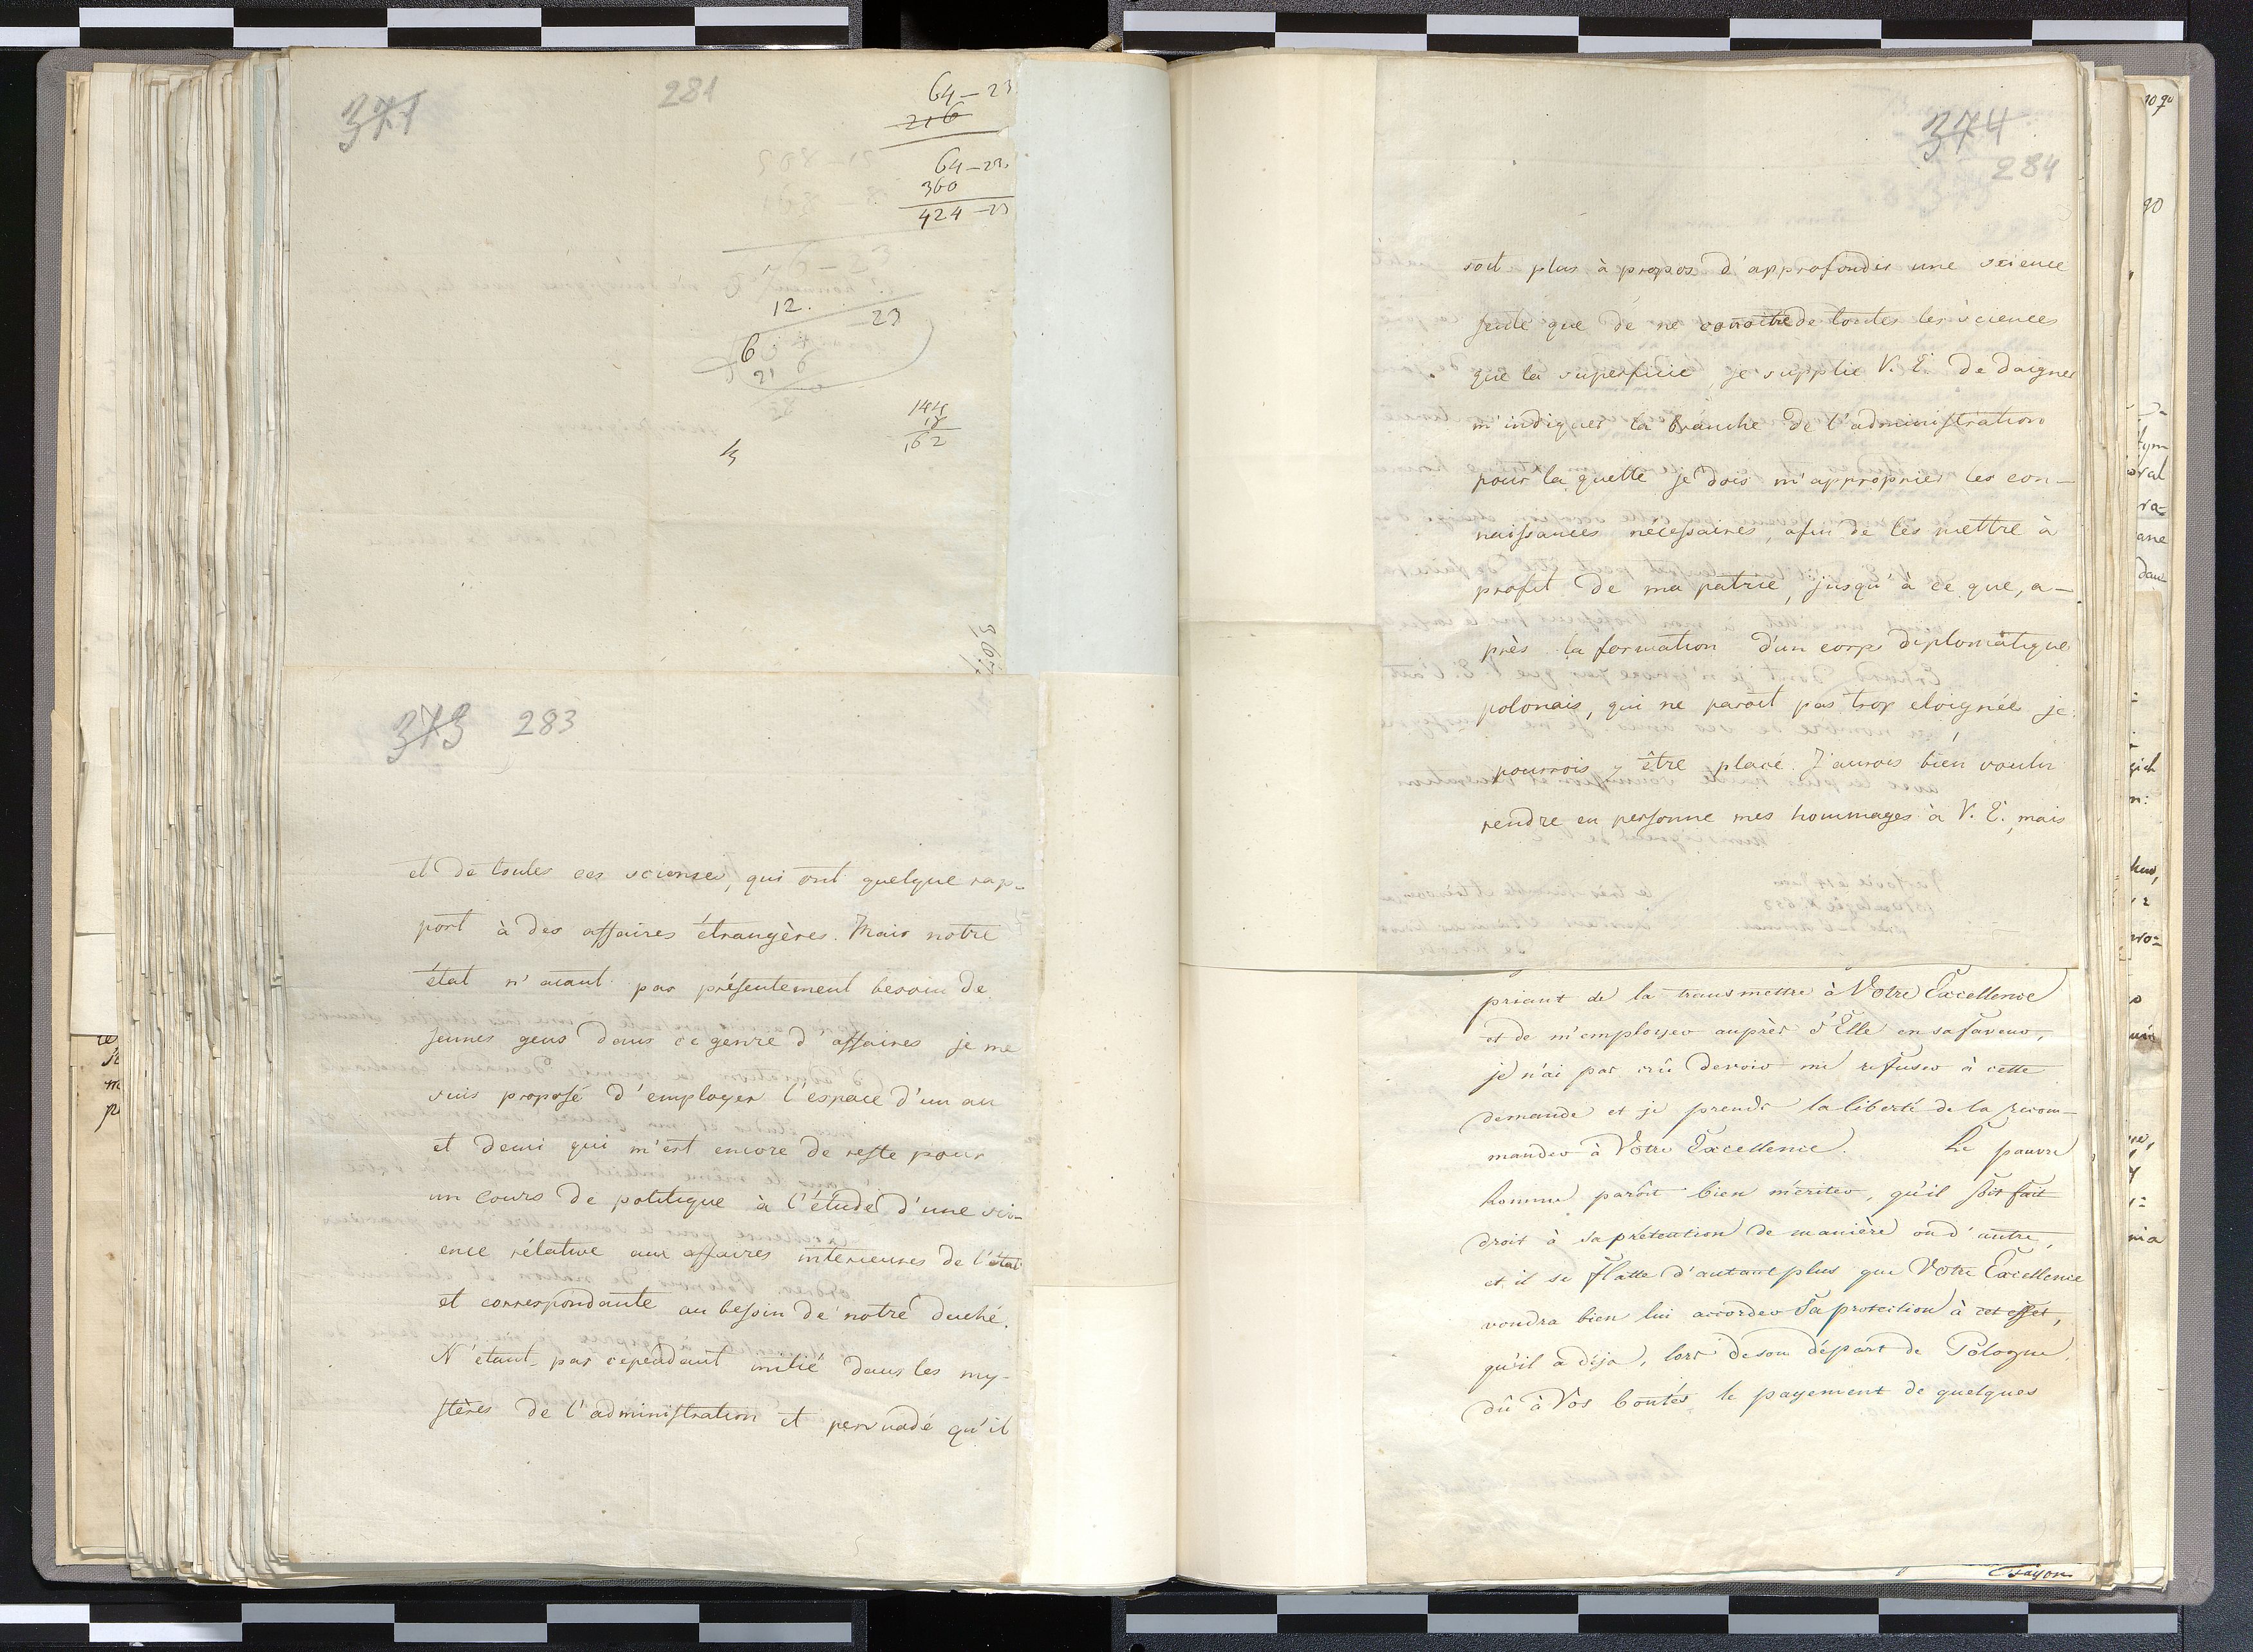 371
281
64-23
216
64-23.
360
424-23
12.
23
6
21 6
144
18
162
373 283
et de toutes ces sciences, qui ont quelque rap-
port à des affaires étrangères. Mais notre
état n'aiant pas présentement besoin de
jeunes gens dans ce genre d'affaires je me
suis proposé d'employer l'espace d'un an
et demi qui m'est encore de reste pour
un cours de politique à l'étude d'une sci-
ence rélative aux affaires interieures de l'état
et correspondante au besoin de notre duché.
N'étant pas cependant initié dans les my-
stères de l'administration et persuadé qu'il
374
284
soit plus à propos d'approfondir une science
seule que de ne conoitre de toutes les sciences
que la superficie, je supplie V. E. de daigner
m'indiquer la branche de l'administration
pour la quelle je dois m'approprier les con-
naissances nécessaires, afin de les mettre à
profit de ma patrie, jusqu'à ce que, a-
près la formation d'un corps diplomatique
polonais, qui ne paroit pas trop eloignée je
pourrois y être placé. J'aurois bien voulu
rendre en personne mes hommages à V. E. mais
priant de la transmettre à Votre Excellence
et de m'employer auprès d'Elle en sa faveur,
je n'ai pas crû devoir me refuser à cette
demande et je prends la liberté de la recom-
mander à Votre Excellence. Le pauvre
homme paroit bien mériter, qu'il soit fait
droit à sa prétention de manière ou d'autre,
et il se flatte d'autant plus que Votre Excellence
voudra bien lui accorder Sa protection à cet effet,
qu'il a déja, lors de son départ de Pologne,
dû à Vos bontés le payement de quelques